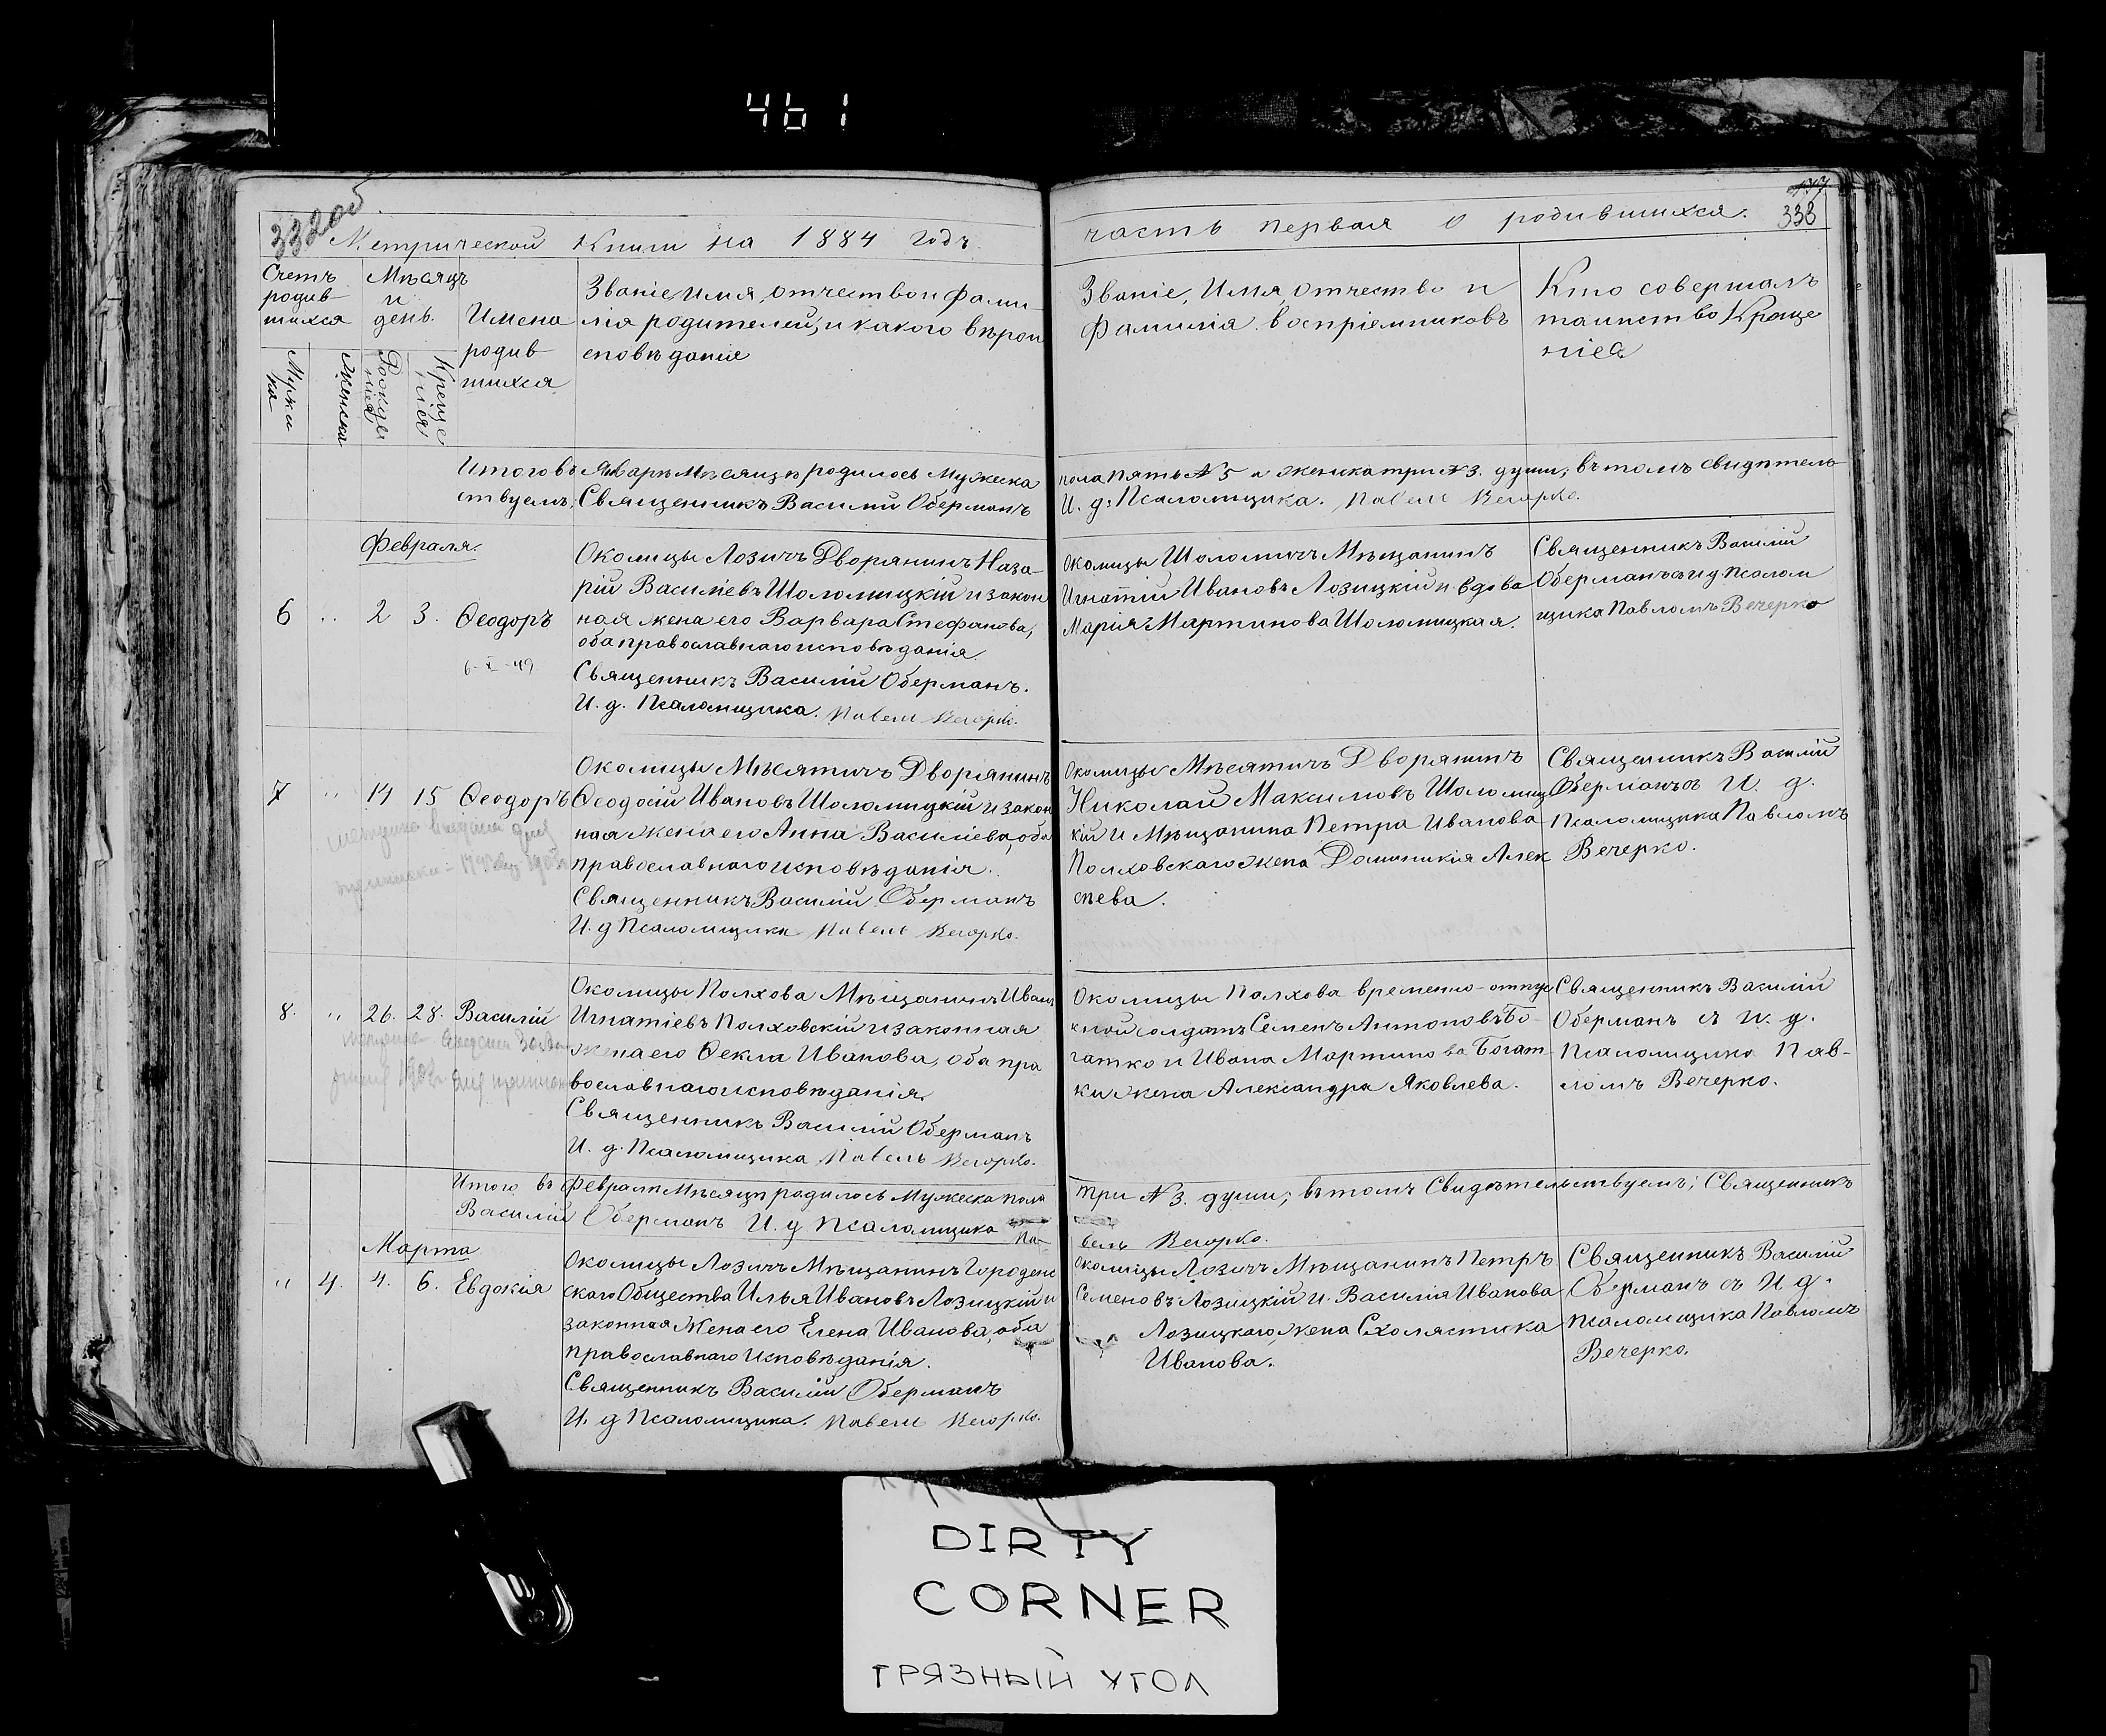 461
332 об
Метрической Книги на 1884 годъ
Счетъ
родив-
шихся
Мѣсяцъ
и
день.
Мужска
Женска
Рожде
нія
Креще
нія
Имена
родив
шихся
Званіе имя, отчество и фами
лія родителей, и какого вѣрои
сповѣданія
Итого въ Январѣ Мѣсяцѣ родилось Мужеска
ствуемъ: Священникъ Василій Оберманъ
Февраля.
6 " 2 3. Ѳеодоръ
6-X-49
Околицы Лозичъ Дворянинъ Наза-
рій Василіевъ Шоломицкій и закон
ная жена его Варвара Стефанова,
оба православнаго исповѣданія.
Священникъ Василій Оберманъ.
И. д. Псаломщика. Павелъ Вечорко.
7 " 14 15 Ѳеодоръ
Околицы Мѣсятичъ Дворянинъ
Ѳеодосій Ивановъ Шоломицкій и закон
ная жена его Анна Василіева, оба
православнаго исповѣданія.
Священникъ Василій Оберманъ
И. д Псаломщика Павелъ Вечорко.
8. " 26. 28. Василій
Околицы Полхова Мѣщанинъ Иванъ
Игнатіевъ Полховскій и законная
жена его Ѳекла Иванова, оба пра
вославнаго исповѣданія.
Священникъ Василій Оберманъ
И. д. Псаломщика Павелъ Вечорко.
Итого въ Февралѣ Мѣсяцѣ родилось Мужеска пола
Василій Оберманъ И. д Псаломщика Па-
Марта
" 4. 4. 6. Евдокія
Околицы Лозичъ Мѣщанинъ Городен
скаго Общества Илья Ивановъ Лозицкій и
законная Жена его Елена Иванова, оба
православнаго Исповѣданія.
Священникъ Василій Оберманъ
И. д Псаломщика. Павелъ Вечорко.
часть первая о родившихся.
338
Званіе, Имя, отчество и
Фамилія воспріемниковъ
Кто совершалъ
таинство Креще
нія
пола пять № 5 и женска три № 3. души; въ томъ свидѣтель
И. д. Псаломщика. Павелъ Вечорко.
Околицы Шоломичъ Мѣщанинъ
Игнатій Ивановъ Лозицкій и вдова
Марія Мартинова Шоломицкая.
Священникъ Василій
Оберманъ съ и д. Псалом
щика Павломъ Вечерко
Околицы Мѣсятичъ Дворянинъ
Николай Максимовъ Шоломиц
кій и Мѣщанина Петра Иванова
Полховскаго жена Доминикія Алек
сѣева.
Священникъ Василій
Оберманъ съ И. д.
Псаломщика Павломъ
Вечерко.
Околицы Палхова временно-отпус
кной солдатъ Семенъ Антоновъ Бо-
гатко и Ивана Мартинова Богат
ки жена Александра Яковлева.
Священникъ Василій
Оберманъ съ И. д.
Псаломщика Пав-
ломъ Вечерко.
три № 3. души; въ томъ Свидѣтельствуемъ; Священникъ
велъ Вечорко.
Околицы Лозичъ Мѣщанинъ Петръ
Семеновъ Лозицкій и Василія Иванова
Лозицкаго жена Схолястика
Иванова.
Священникъ Василій
Оберманъ съ И д.
Псаломщика Павломъ
Вечерко.
DIRTY
CORNER
ГРЯЗНЫЙ УГОЛ